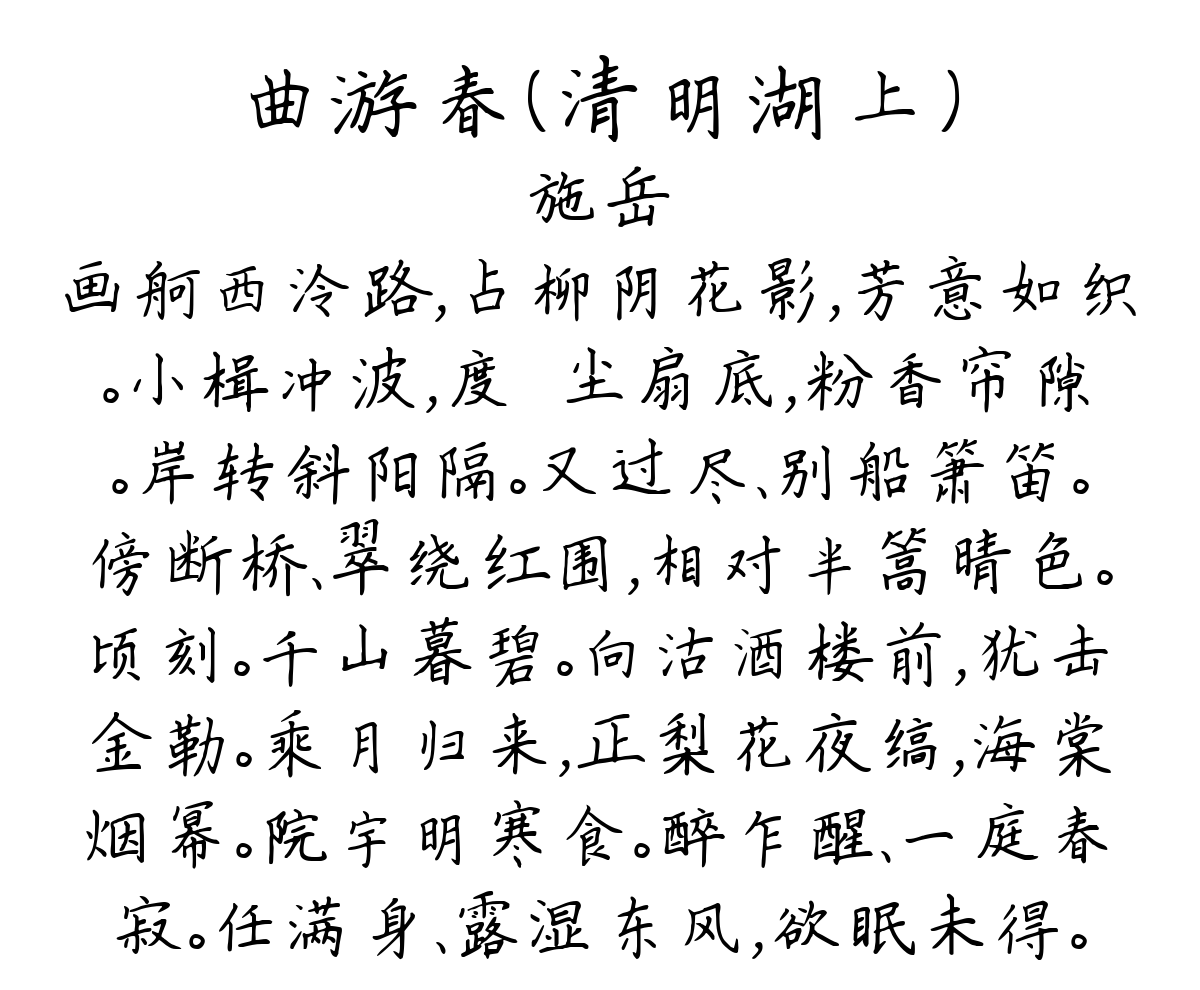 曲游春(清明湖上)
施岳
画舸西泠路,占柳阴花影,芳意如织
。小楫冲波,度 尘扇底,粉香帘隙
。岸转斜阳隔。又过尽、别船箫笛。
傍断桥、翠绕红围,相对半篙晴色。
顷刻。千山暮碧。向沽酒楼前,犹击
金勒。乘月归来,正梨花夜缟,海棠
烟幂。院宇明寒食。醉乍醒、一庭春
寂。任满身、露湿东风,欲眠未得。